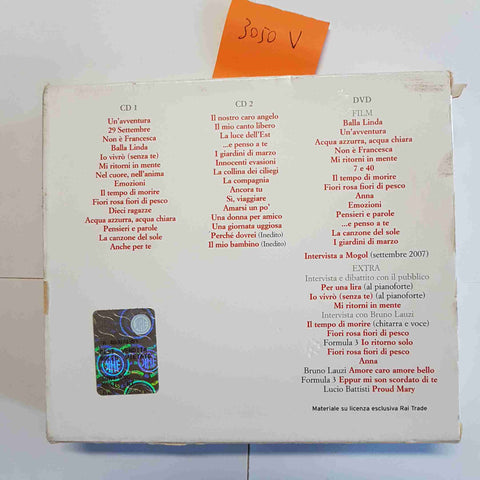 3050 V
CD 1
Un'avventura
29 Settembre
Non è Francesca
Balla Linda
Io vivrò (senza te)
Mi ritorni in mente
Nel cuore, nell'anima
Emozioni
Il tempo di morire
Fiori rosa fiori di pesco
Dieci ragazze
Acqua azzurra, acqua chiara
Pensieri e parole
La canzone del sole
Anche per te
CD 2
Il nostro caro angelo
Il mio canto libero
La luce dell'Est
...e penso a te
I giardini di marzo
Innocenti evasioni
La collina dei ciliegi
La compagnia
Ancora tu
Sì, viaggiare
Amarsi un po'
Una donna per amico
Una giornata uggiosa
Perchè dovrei (Inedito)
Il mio bambino (Inedito)
DVD
FILM
Balla Linda
Un'avventura
Acqua azzurra, acqua chiara
Non è Francesca
Mi ritorni in mente
7 e 40
Il tempo di morire
Fiori rosa fiori di pesco
Anna
Emozioni
Pensieri e parole
...e penso a te
La canzone del sole
I giardini di marzo
Intervista a Mogol (settembre 2007)
EXTRA
Intervista e dibattito con il pubblico
Per una lira (al pianoforte)
Io vivrò (senza te) (al pianoforte)
Mi ritorni in mente
Intervista con Bruno Lauzi
Il tempo di morire (chitarra e voce)
Fiori rosa fiori di pesco
Formula 3 Io ritorno solo
Fiori rosa fiori di pesco
Anna
Bruno Lauzi Amore caro amore bello
Formula 3 Eppur mi son scordato di te
Lucio Battisti Proud Mary
Materiale su licenza esclusiva Rai Trade
SIAE